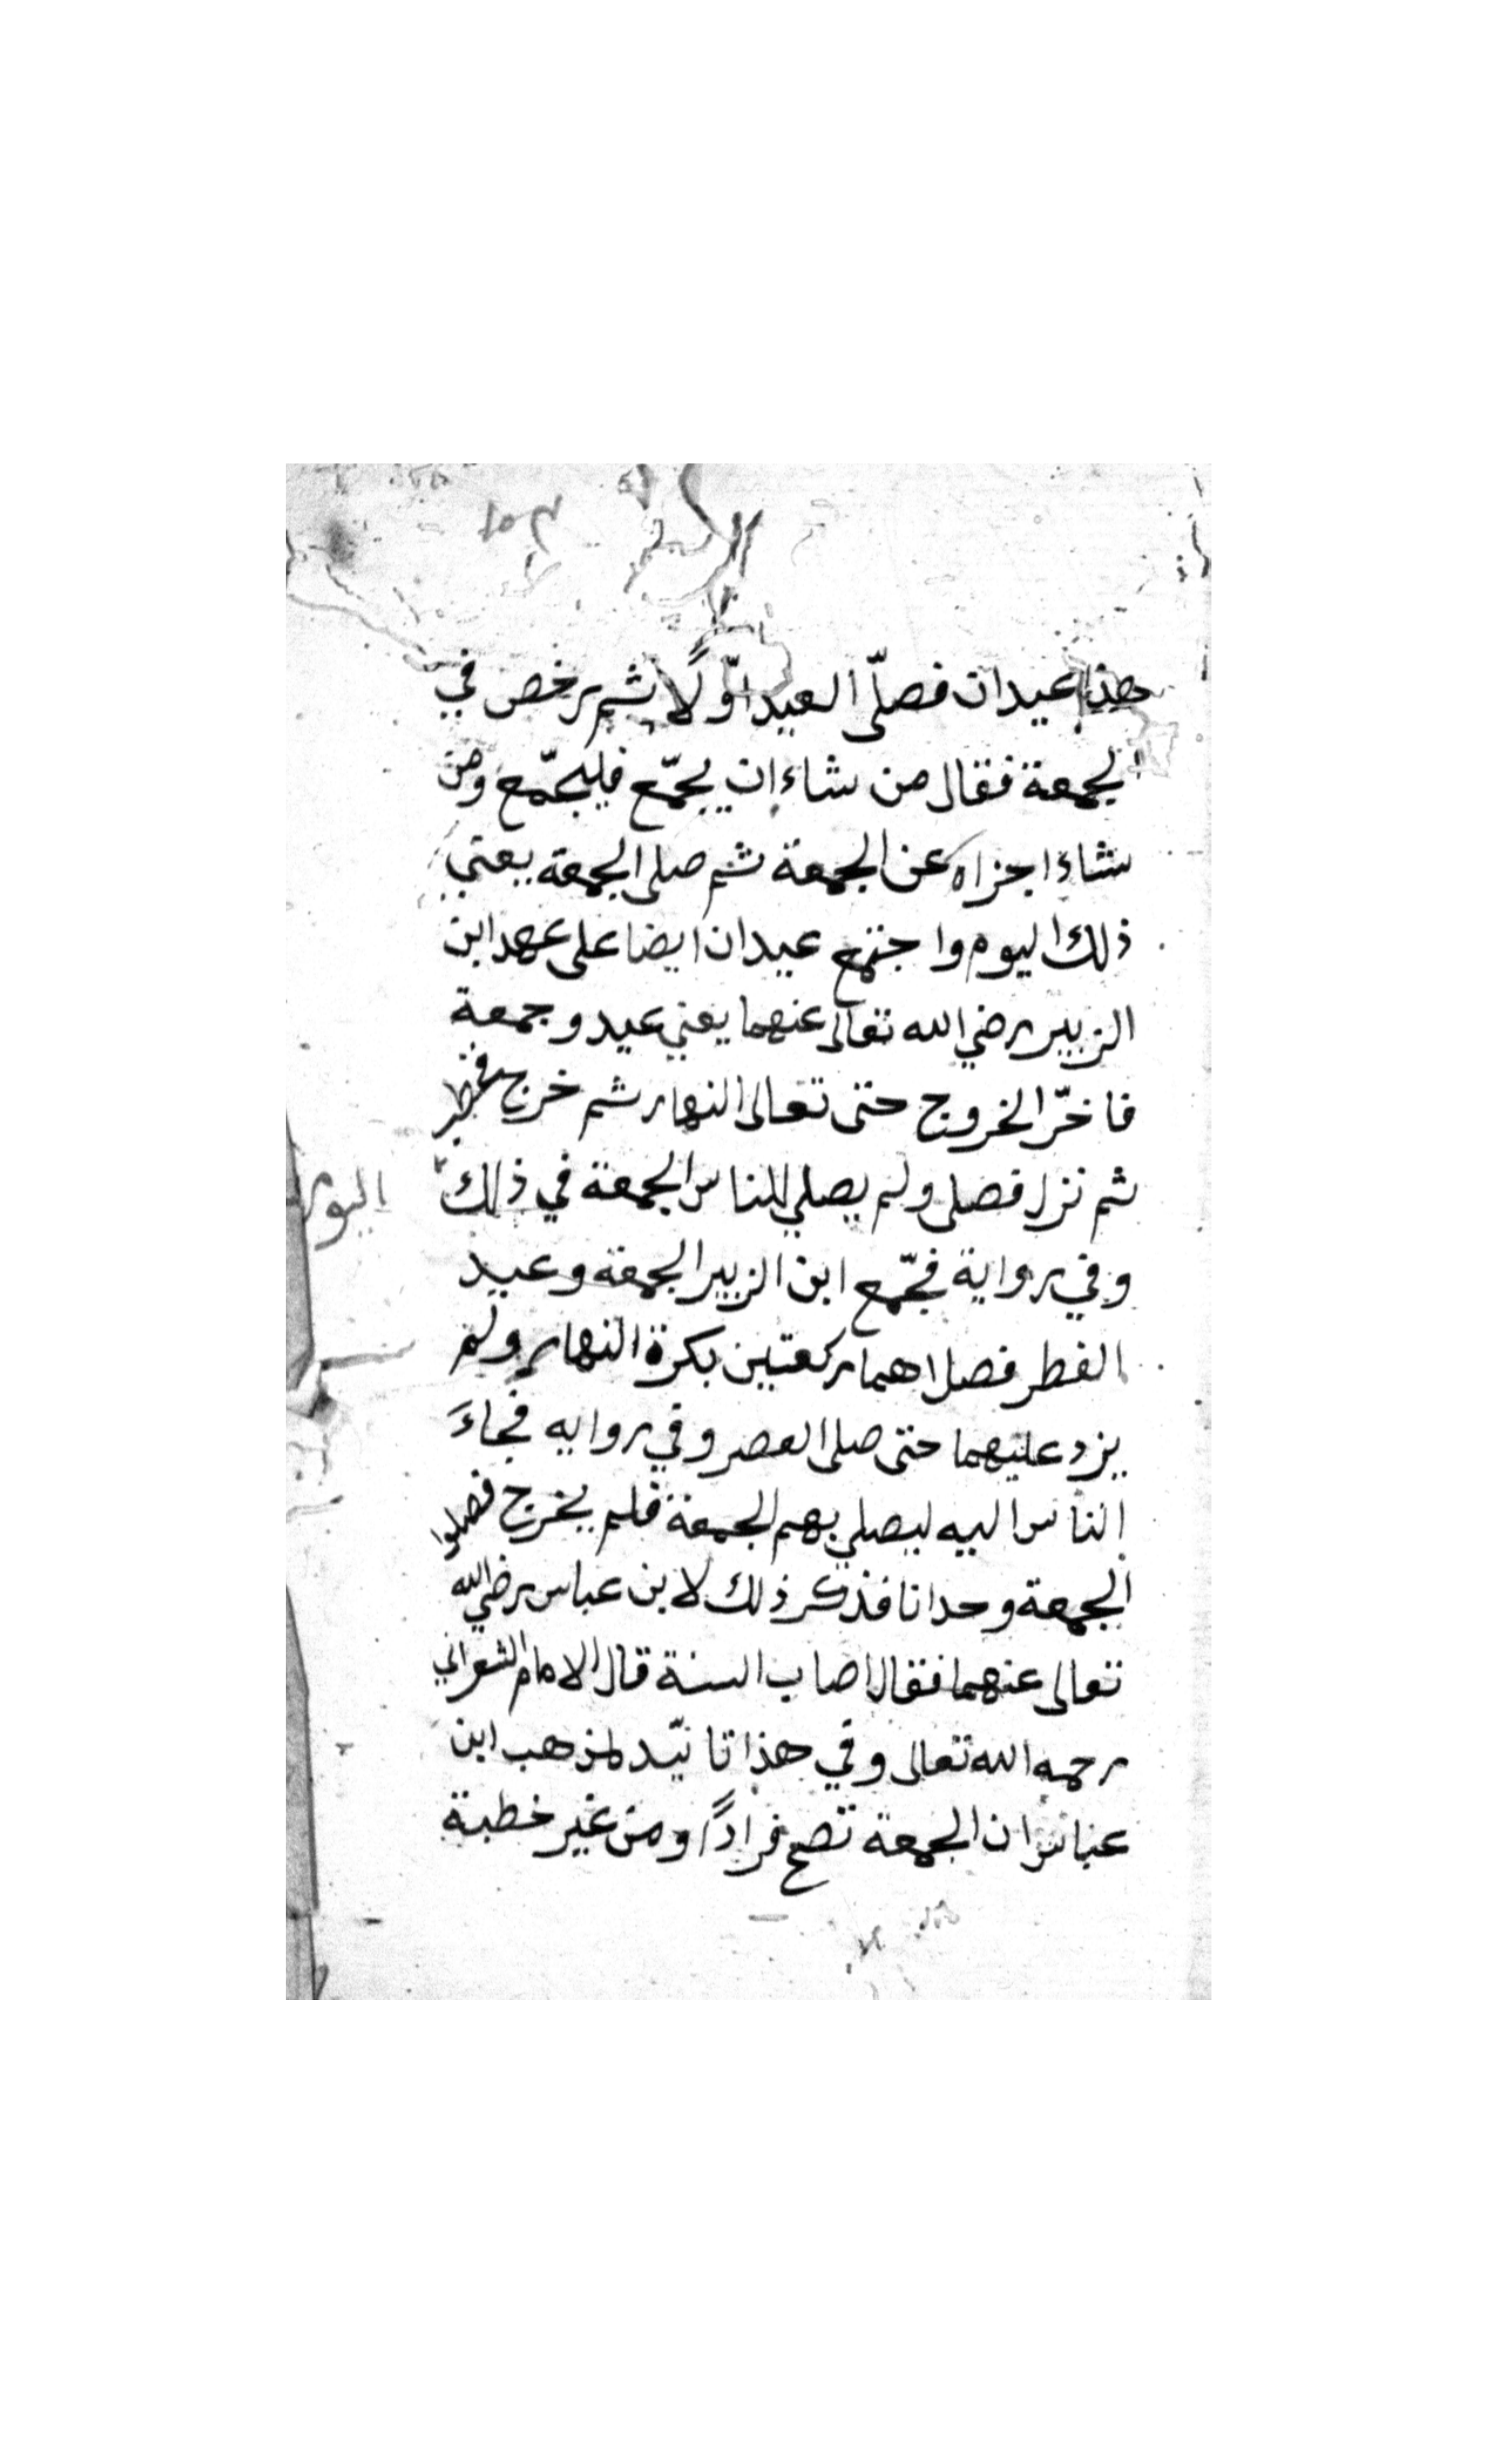 هذا عيدان فصلّى العيد اوّلًا ثم رخص في
الجمعة فقال من شاء ان يجمّع فليجمّع ومن
شاء اجزاه عن الجمعة ثم صلى الجمعة يعني
ذلك اليوم واجتمع عيدان ايضا على عهد ابن
الزبير رضي الله تعالى عنهما يعني عيد وجمعة
فاخّر الخروج حتى تعالى النهار ثم خرج فخطب
ثم نزل فصلى ولم يصلي للناس الجمعة في ذلك
اليوم
وفي رواية فجمّع ابن الزبير الجمعة وعيد
الفطر فصلاهما ركعتين بكرة النهار ولم
يزد عليهما حتى صلى العصر وفي روايه فجاءَ
الناس اليه ليصلي بهم الجمعة فلم يخرج فصلوا
الجمعة وحدانا فذكر ذلك لابن عباس رضي الله
تعالى عنهما فقال اصاب السنة قال الامام الشعراني
رحمه الله تعالى وفي هذا تائيّد لمذهب ابن
عباس ان الجمعة تصح فرادًا ومن غير خطبة